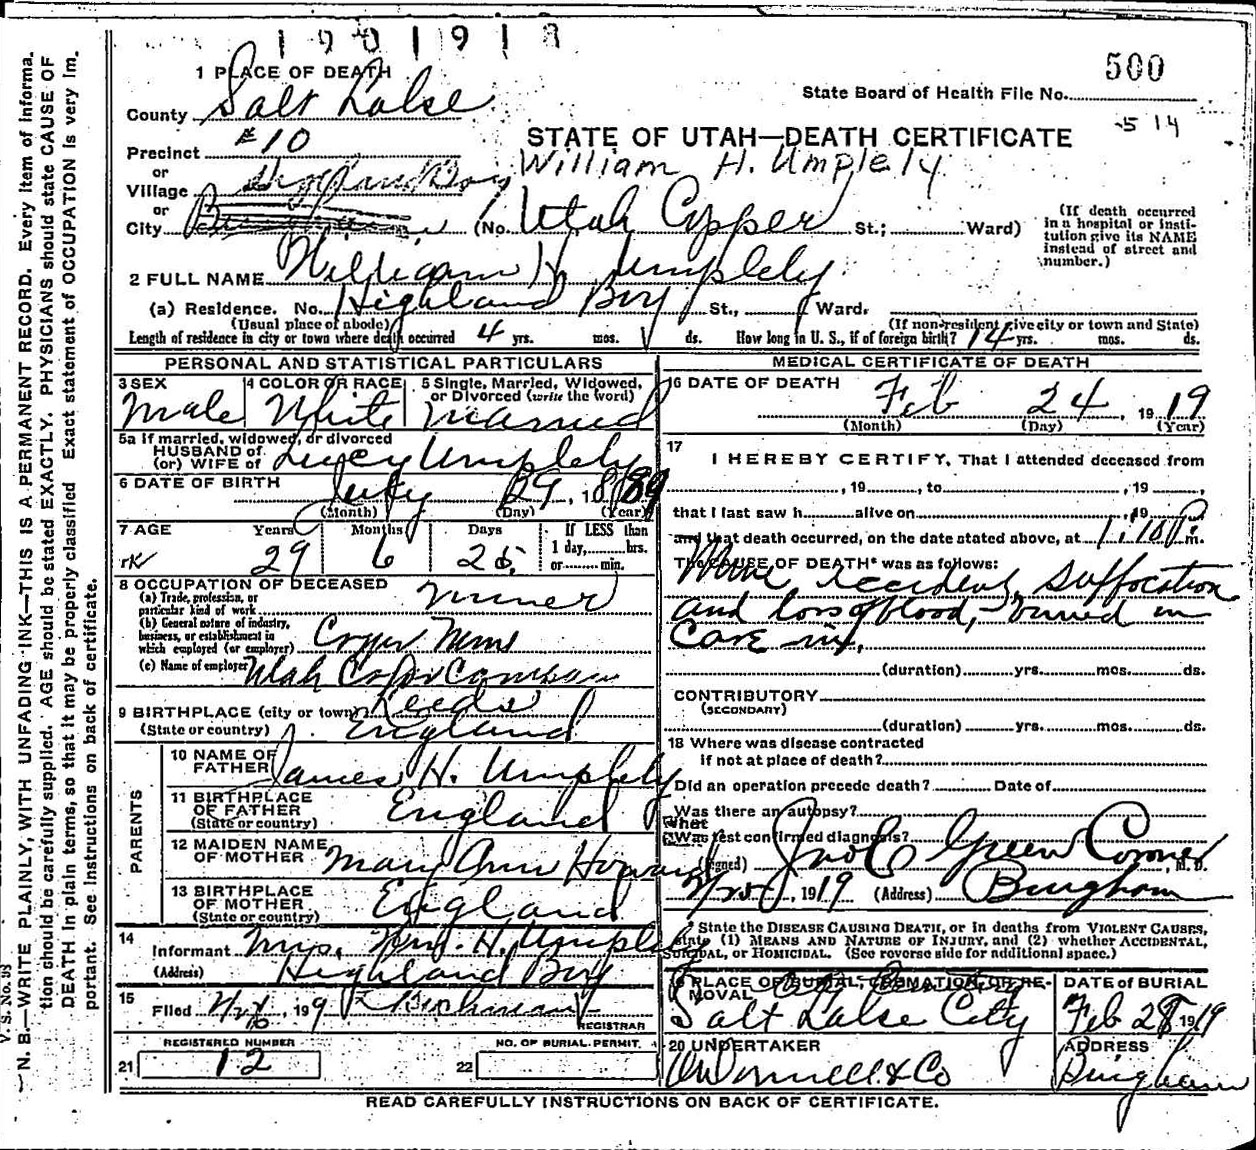 1901918
500
1 PLACE OF DEATH
State Board of Health File No.
County Salt Lake
514
STATE OF UTAH—DEATH CERTIFICATE
Precinct #10
William H. Umplely
or
Village
or
City (No. Utah Copper St.; Ward)
(If death occurred in a hospital or insti-tution give its NAME instead of street and number.)
2 FULL NAME William H Umplely
(a) Residence. No. Highland Boy St., Ward.
(Usual place of abode) (If non-resident give city or town and State)
Length of residence in city or town where death occurred 4 yrs. mos. ds. How long in U. S., if of foreign birth? 14 yrs. mos. ds.
PERSONAL AND STATISTICAL PARTICULARS
3 SEX Male
4 COLOR OR RACE White
5 Single, Married, Widowed, or Divorced (write the word) Married
5a If married, widowed, or divorced
HUSBAND of
(or) WIFE of Lucy Umplely
6 DATE OF BIRTH July 29, 1889
(Month) (Day) (Year)
7 AGE Years 29 Months 6 Days 25
If LESS than 1 day, hrs. or min.
8 OCCUPATION OF DECEASED
(a) Trade, profession, or particular kind of work miner
(b) General nature of industry, business, or establishment in which employed (or employer) Copper
(c) Name of employer Utah Copper Company
9 BIRTHPLACE (city or town) Leeds
(State or country) England
PARENTS
10 NAME OF FATHER James H. Umplely
11 BIRTHPLACE OF FATHER (State or country) England
12 MAIDEN NAME OF MOTHER Mary Ann Howard
13 BIRTHPLACE OF MOTHER (State or country) England
14 Informant Mrs. Wm. H. Umplely
(Address) Highland Boy
15 Filed , 1919
REGISTRAR
REGISTERED NUMBER
21 12
NO. OF BURIAL PERMIT.
22
MEDICAL CERTIFICATE OF DEATH
16 DATE OF DEATH Feb 24, 1919
(Month) (Day) (Year)
17 I HEREBY CERTIFY, That I attended deceased from
, 19 , to , 19 ,
that I last saw h alive on , 19
and that death occurred, on the date stated above, at 1:10 P m.
The CAUSE OF DEATH* was as follows:
Mine accident, suffocation
and loss of blood,- buried in
Cave in.
(duration) yrs. mos. ds.
CONTRIBUTORY
(SECONDARY)
(duration) yrs. mos. ds.
18 Where was disease contracted
if not at place of death?
Did an operation precede death? Date of
Was there an autopsy?
What
Was test confirmed diagnosis?
(Signed) Jno C Green Coroner, M. D.
2/25, 1919 (Address) Bingham
State the DISEASE CAUSING DEATH, or in deaths from VIOLENT CAUSES,
state (1) MEANS AND NATURE OF INJURY, and (2) whether ACCIDENTAL,
SUICIDAL, or HOMICIDAL. (See reverse side for additional space.)
19 PLACE OF BURIAL, CREMATION, OR RE-MOVAL
Salt Lake City
DATE of BURIAL
Feb 28 1919
20 UNDERTAKER
O'Donnell & Co
ADDRESS
Bingham
READ CAREFULLY INSTRUCTIONS ON BACK OF CERTIFICATE.
V. S. No. 95
N. B.—WRITE PLAINLY, WITH UNFADING INK—THIS IS A PERMANENT RECORD. Every item of informa-
tion should be carefully supplied. AGE should be stated EXACTLY. PHYSICIANS should state CAUSE OF
DEATH in plain terms, so that it may be properly classified. Exact statement of OCCUPATION is very im-
portant. See instructions on back of certificate.